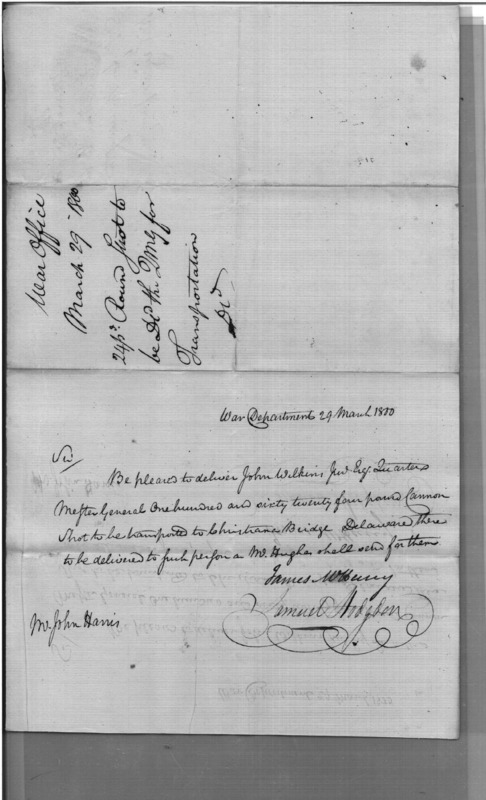 War Office
March 29 1800
24 pd. Round Shot to
be Dd. the QMG for
Transportation
Dd
War Department 29 March 1800
Sir/
Be pleased to deliver John Wilkins Junr Esqr Quarter
Master General One hundred and sixty twenty four pound Cannon
Shot to be transported to Christiana Bridge Delaware there
to be delivered to such person as Mr. Hughes shall send for them
James McHenry
Samuel Hodgdon
Mr. John Harris